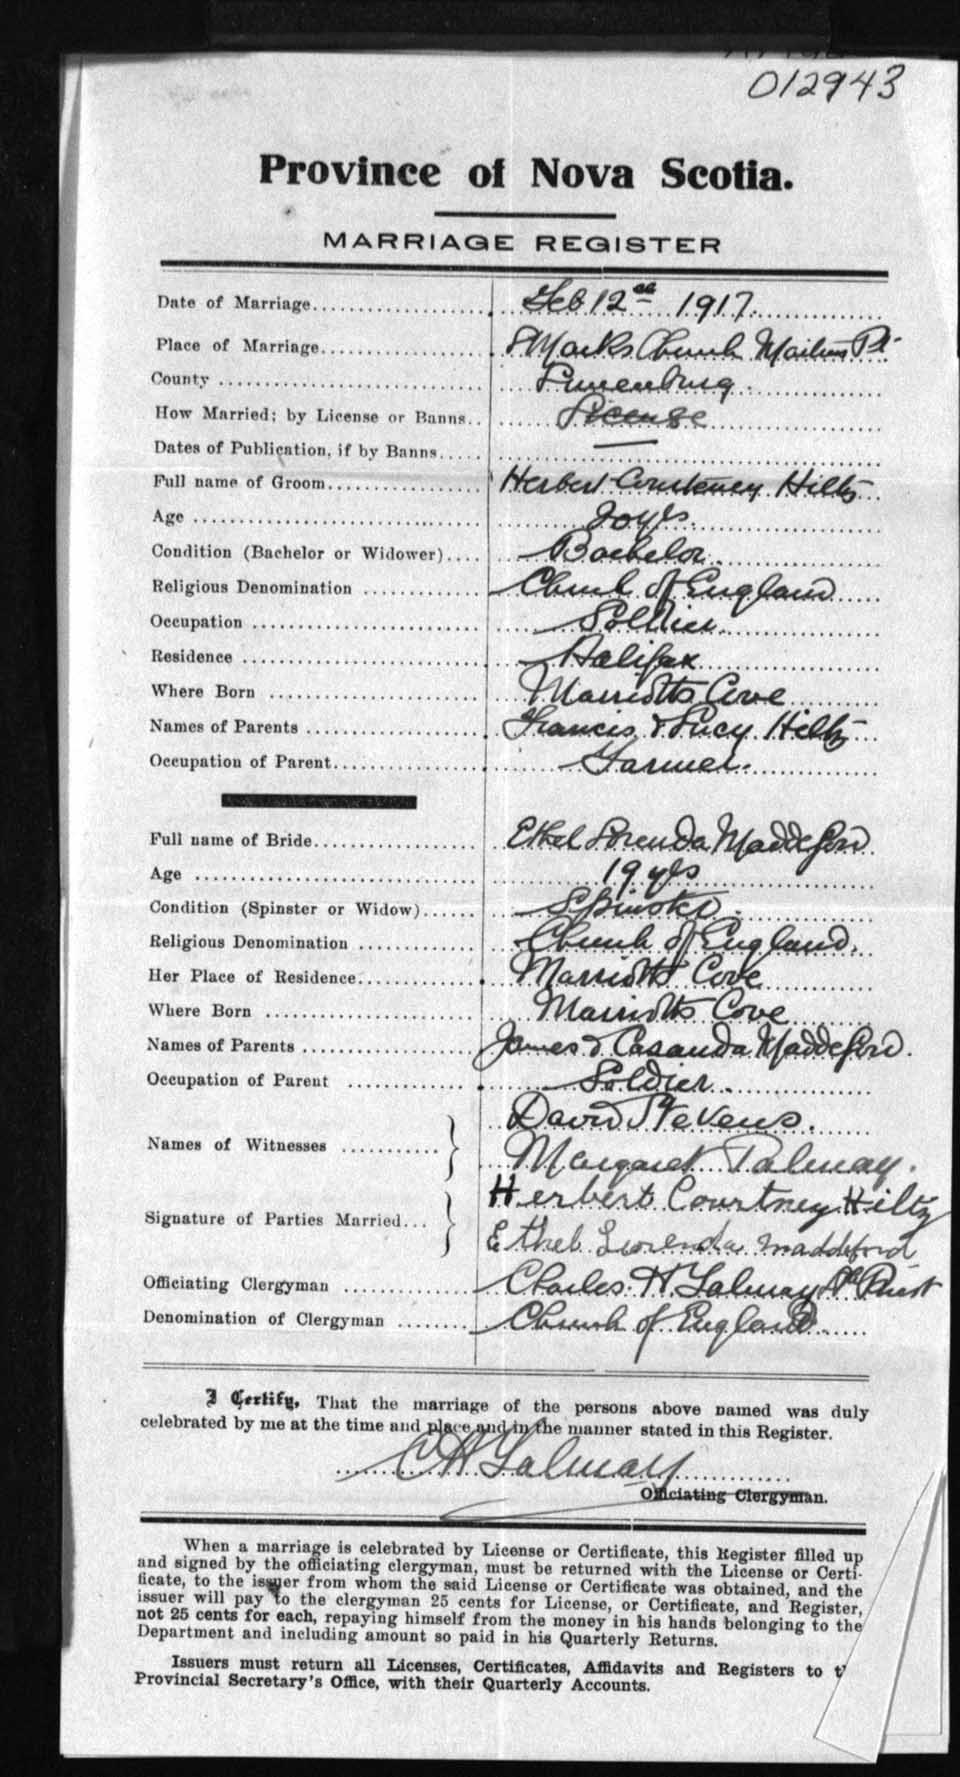 012943
Province of Nova Scotia.
MARRIAGE REGISTER
Date of Marriage Feb 12th 1917
Place of Marriage S Marks Church
County Lunenburg
How Married; by License or Banns License
Dates of Publication, if by Banns —
Full name of Groom Herbert Courtenay Hiltz
Age 20 yrs.
Condition (Bachelor or Widower) Bachelor.
Religious Denomination Church of England
Occupation Soldier
Residence Halifax
Where Born Marriotts Cove
Names of Parents Francis & Lucy Hiltz
Occupation of Parent Farmer.
Full name of Bride Ethel Lorenda Maddeford
Age 19 yrs
Condition (Spinster or Widow) Spinster.
Religious Denomination Church of England.
Her Place of Residence Marriotts Cove
Where Born Marriotts Cove
Names of Parents James & Casanda Maddeford.
Occupation of Parent Soldier.
Names of Witnesses David Stevens.
Margaret Talmay.
Signature of Parties Married Herbert Courtney Hiltz
Ethel Lorenda Maddeford
Officiating Clergyman Charles H Talmay Priest
Denomination of Clergyman Church of England
I Certify, That the marriage of the persons above named was duly
celebrated by me at the time and place and in the manner stated in this Register.
C H Talmay
Officiating Clergyman.
When a marriage is celebrated by License or Certificate, this Register filled up
and signed by the officiating clergyman, must be returned with the License or Certi-
ficate, to the issuer from whom the said License or Certificate was obtained, and the
issuer will pay to the clergyman 25 cents for License, or Certificate, and Register,
not 25 cents for each, repaying himself from the money in his hands belonging to the
Department and including amount so paid in his Quarterly Returns.
Issuers must return all Licenses, Certificates, Affidavits and Registers to
Provincial Secretary's Office, with their Quarterly Accounts.